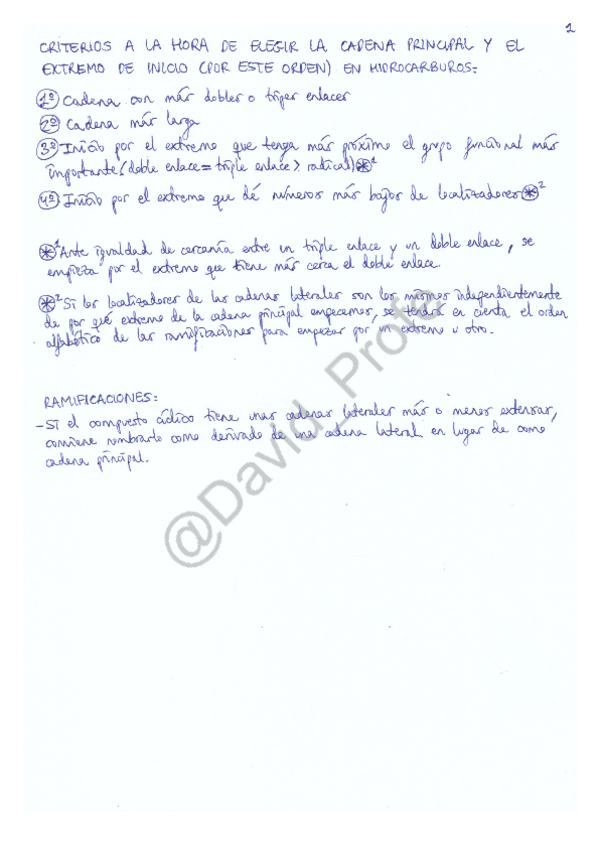 1
CRITERIOS A LA HORA DE ELEGIR LA CADENA PRINCIPAL Y EL
EXTREMO DE INICIO (POR ESTE ORDEN) EN HIDROCARBUROS:
1º Cadena con más dobles o triples enlaces
2º Cadena más larga
3º Inicio por el extremo que tenga más próximo el grupo funcional más
importante (doble enlace = triple enlace > radical) *1
4º Inicio por el extremo que dé números más bajos de localizadores *2
*1 Ante igualdad de cercanía entre un triple enlace y un doble enlace, se
empieza por el extremo que tiene más cerca el doble enlace.
*2 Si los localizadores de las cadenas laterales son los mismos independientemente
de por qué extremo de la cadena principal empecemos, se tendrá en cuenta el orden
alfabético de las ramificaciones para empezar por un extremo u otro.
RAMIFICACIONES:
- Si el compuesto cíclico tiene unas cadenas laterales más o menos extensas,
conviene nombrarlo como derivado de una cadena lateral en lugar de como
cadena principal.
@David_Profe